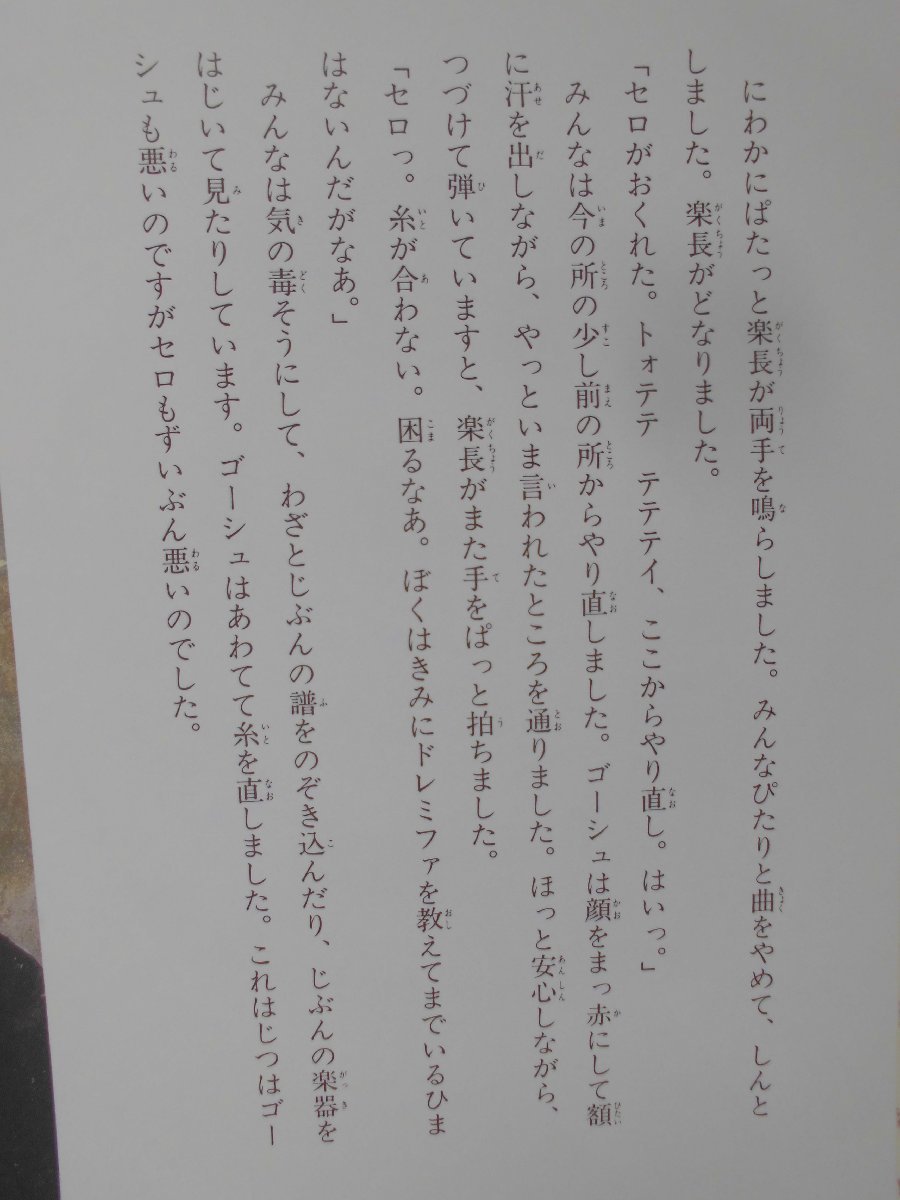 にわかにぱたっと楽長が両手を鳴らしました。みんなぴたりと曲をやめて、しんと
しました。楽長がどなりました。
「セロがおくれた。トォテテ　テテテイ、ここからやり直し。はいっ。」
みんなは今の所の少し前の所からやり直しました。ゴーシュは顔をまっ赤にして額
に汗を出しながら、やっといま言われたところを通りました。ほっと安心しながら、
つづけて弾いていますと、楽長がまた手をぱっと拍ちました。
「セロっ。糸が合わない。困るなあ。ぼくはきみにドレミファを教えてまでいるひま
はないんだがなあ。」
みんなは気の毒そうにして、わざとじぶんの譜をのぞき込んだり、じぶんの楽器を
はじいて見たりしています。ゴーシュはあわてて糸を直しました。これはじつはゴー
シュも悪いのですがセロもずいぶん悪いのでした。